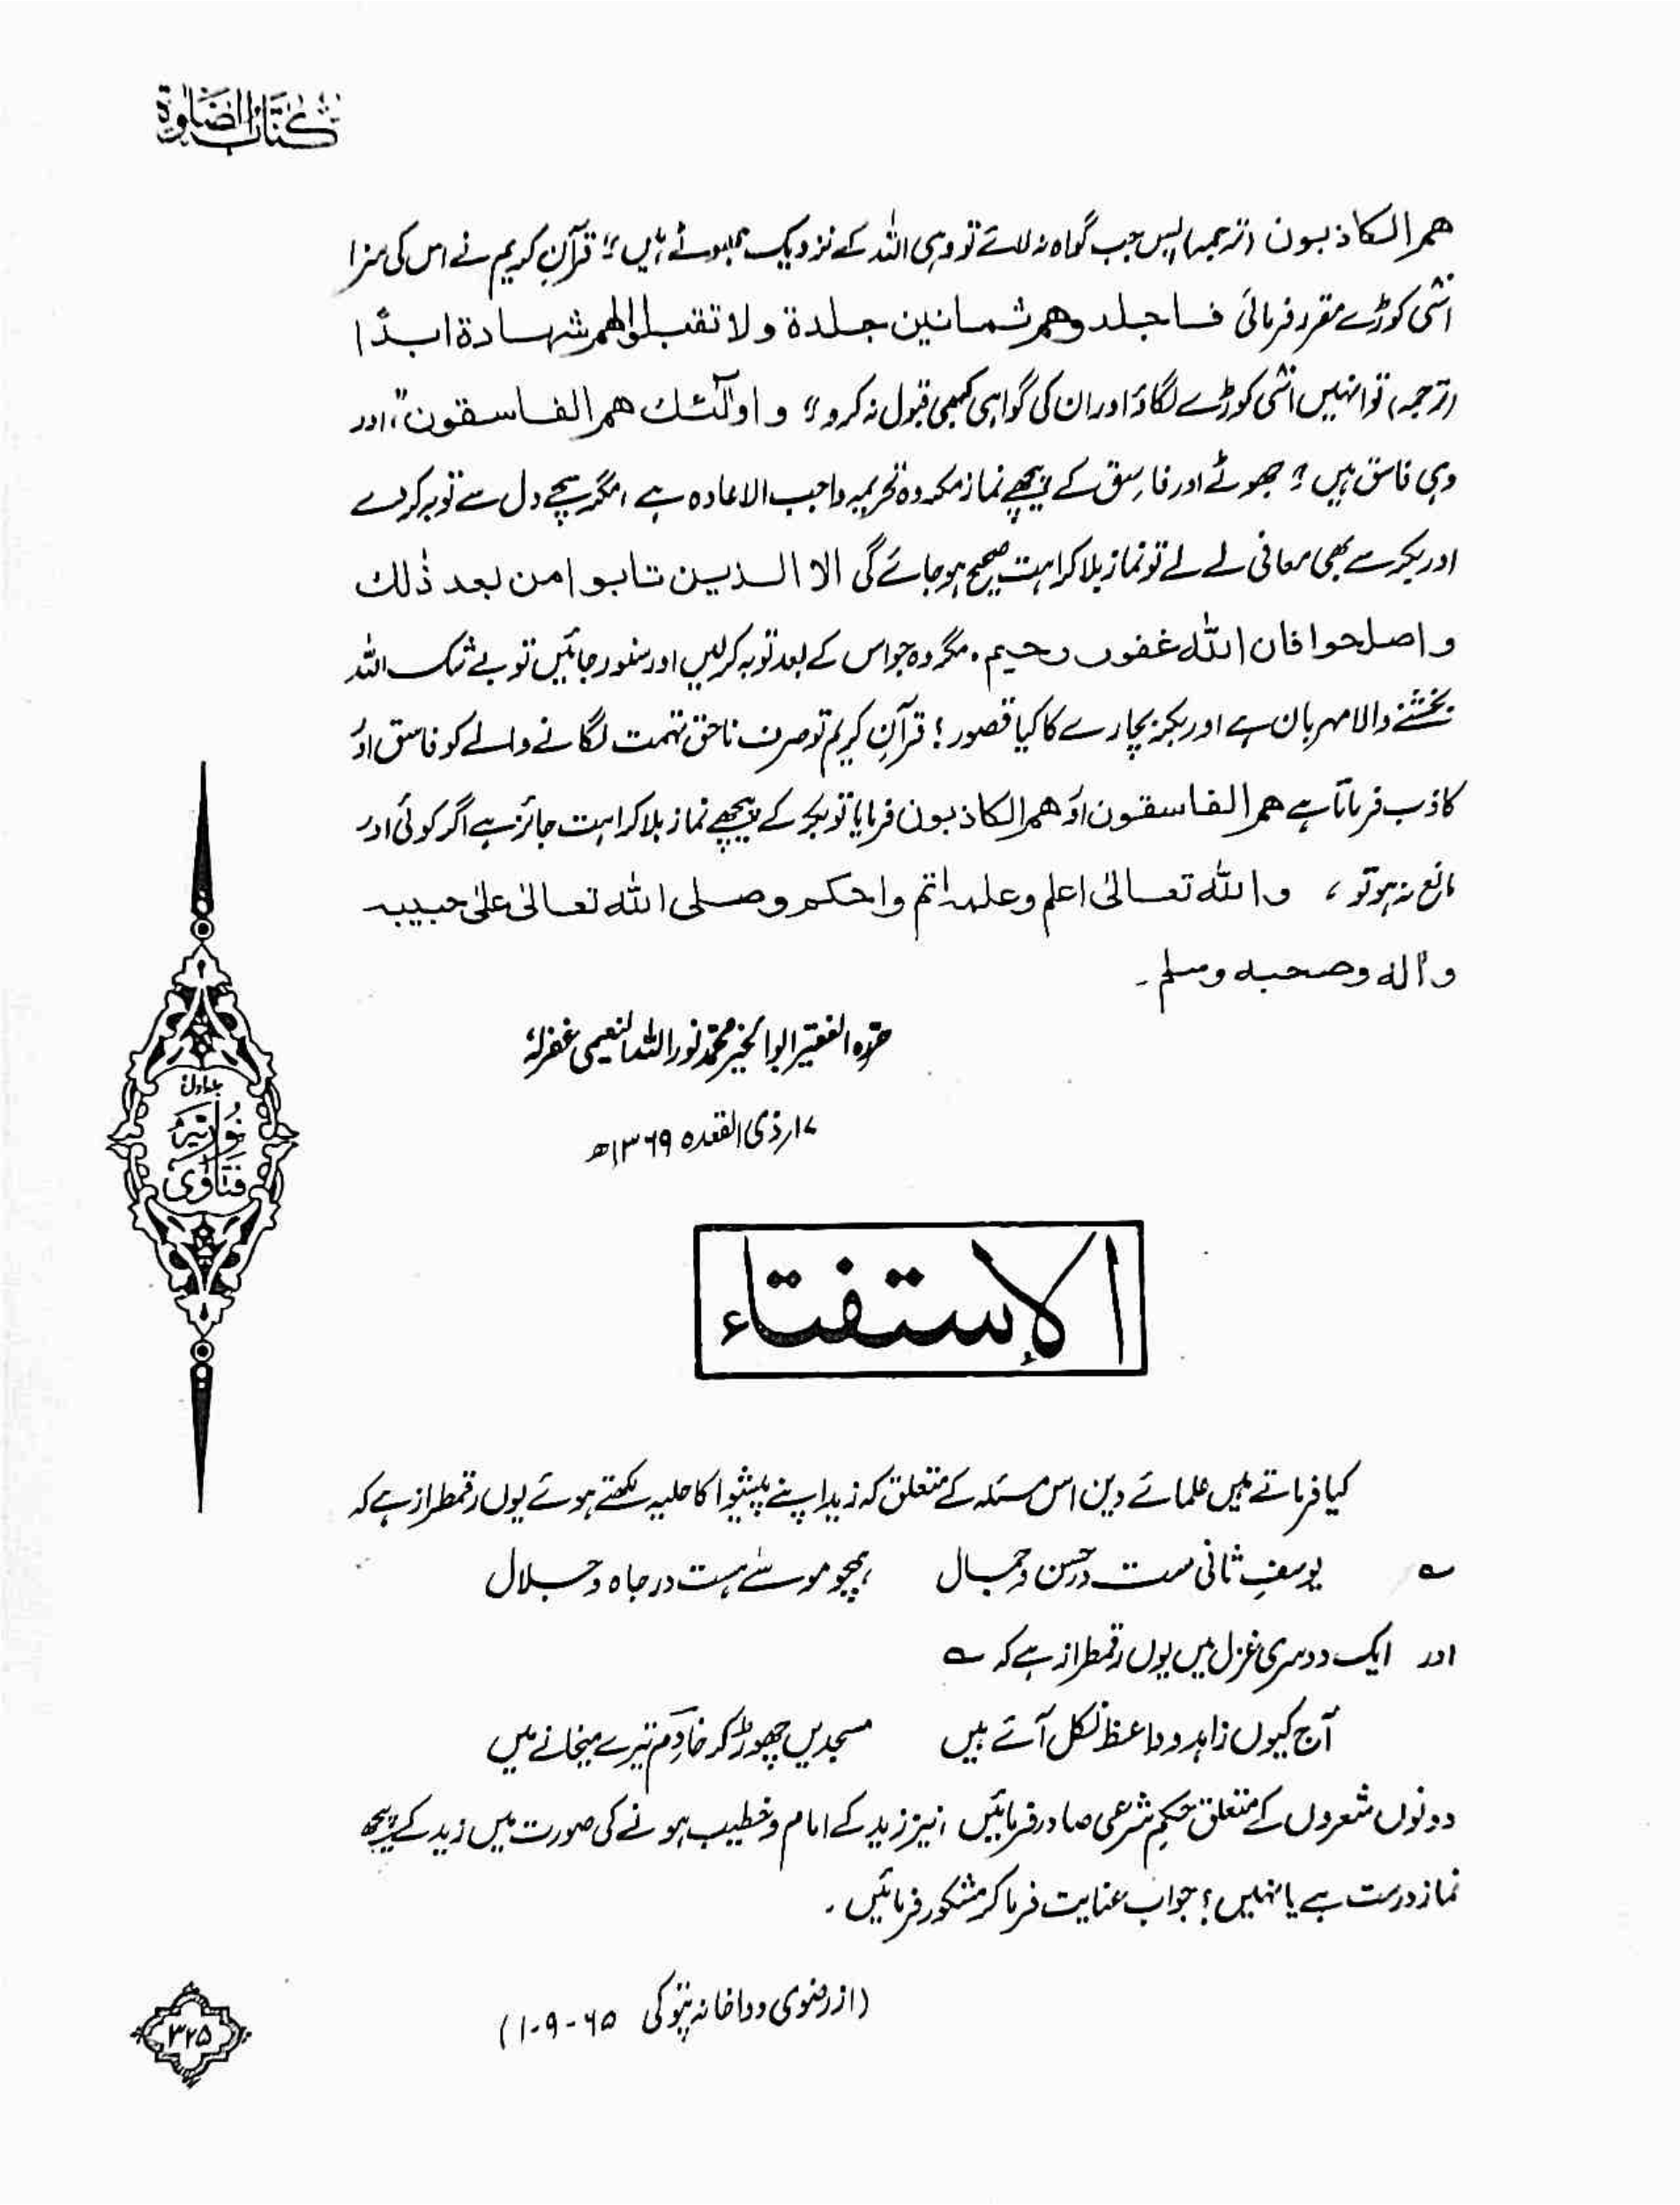 كتاب الصلوة
هم الكاذبون (ترجمہ) پس جب گواہ نہ لائے تو وہی اللہ کے نزدیک جھوٹے ہیں" قرآنِ کریم نے اس کی سزا
اسّی کوڑے مقرر فرمائی فاجلدوهم ثمانين جلدة ولا تقبلوا لهم شهادة ابدًا
(ترجمہ) تو انہیں اسّی کوڑے لگاؤ اور ان کی گواہی کبھی قبول نہ کرو" و اولٓئك هم الفاسقون"، اور
وہی فاسق ہیں" جھوٹے اور فاسِق کے پیچھے نماز مکروہ تحریمہ واجب الاعادہ ہے، مگر سچے دل سے توبہ کرلے
اور بکر سے بھی معافی لے لے تو نماز بلا کراہت صحیح ہو جائے گی الا الذين تابوا من بعد ذٰلك
و اصلحوا فان اللّٰه غفور رحيم۔ مگر وہ جو اس کے بعد توبہ کرلیں اور سنور جائیں تو بے شک اللہ
بخشنے والا مہربان ہے اور بکر بچارے کا کیا قصور؟ قرآنِ کریم تو صرف ناحق تہمت لگانے والے کو فاسق اور
کاذب فرماتا ہے هم الفاسقون اور هم الكاذبون فرمایا تو بکر کے پیچھے نماز بلا کراہت جائز ہے اگر کوئی اور
مانع نہ ہو تو، واللّٰه تعالىٰ اعلم وعلمه اتم واحكم وصلى اللّٰه تعالىٰ علىٰ حبيبه
واٰله وصحبه وسلم۔
حررہ الفقیر ابوالخیر محمد نور اللہ النعیمی غفرلہٗ
۱۷؍ذی القعدہ ۱۳۶۹ھ
جلد اول
نوریہ
فتاویٰ
الإستفتاء
کیا فرماتے ہیں علمائے دین اس مسئلہ کے متعلق کہ زید اپنے پیشوا کا حلیہ لکھتے ہوئے یوں رقمطراز ہے کہ
؎ یوسفِ ثانی ست در حسن و جمال ہمچو موسےٰ ہست در جاہ و جلال
اور ایک دوسری غزل میں یوں رقمطراز ہے کہ ؎
آج کیوں زاہد و واعظ نکل آئے ہیں مسجدیں چھوڑ کر خادم تیرے میخانے میں
دونوں شعروں کے متعلق حکمِ شرعی صادر فرمائیں، نیز زید کے امام و خطیب ہونے کی صورت میں زید کے پیچھے
نماز درست ہے یا نہیں؟ جواب عنایت فرما کر مشکور فرمائیں۔
(از رضوی دواخانہ پتوکی ۶۵-۹-۱۰)
۳۲۵